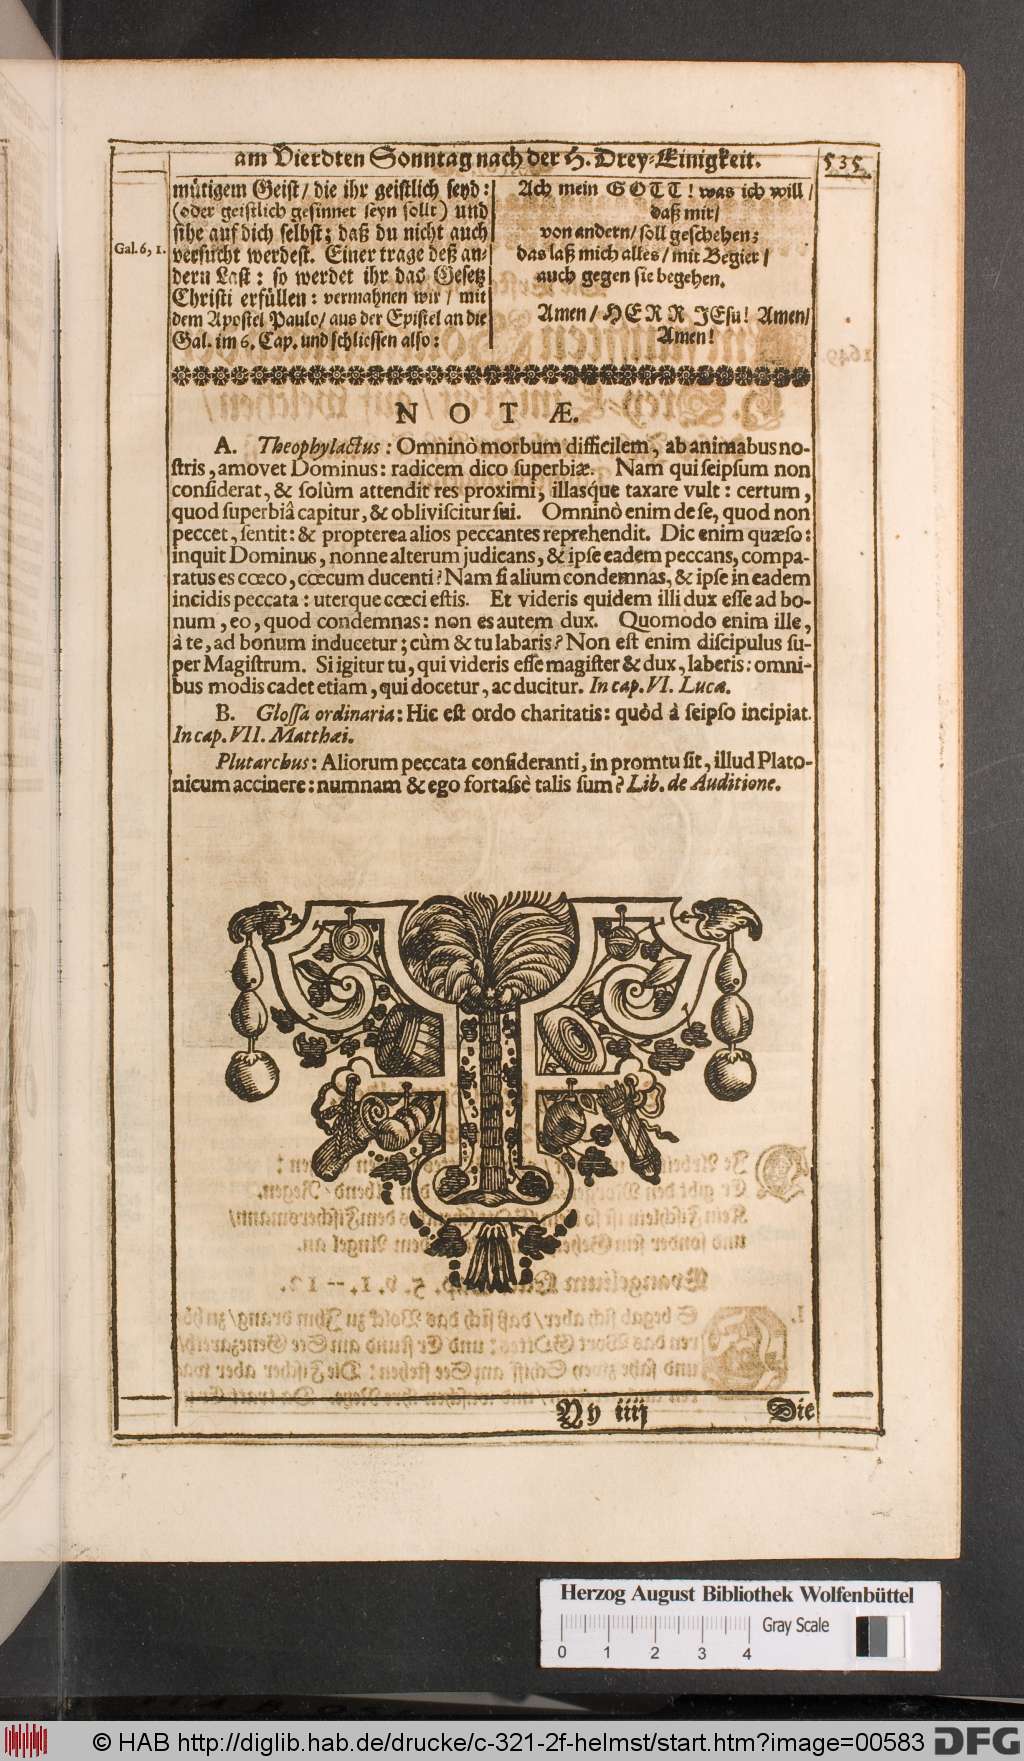 am Vierdten Sonntag nach der H. Drey-Einigkeit.
535
mütigem Geist/ die ihr geistlich seyd:
(oder geistlich gesinnet seyn sollt) und
sihe auf dich selbst; daß du nicht auch
Gal. 6, 1.
versucht werdest. Einer trage deß an-
dern Last: so werdet ihr das Gesetz
Christi erfüllen: vermahnen wir/ mit
dem Apostel Paulo/ aus der Epistel an die
Gal. im 6. Cap. und schliessen also:
Ach mein GOTT! was ich will/
daß mir/
von andern/ soll geschehen;
das laß mich alles/ mit Begier/
auch gegen sie begehen.
Amen/ HERR JEsu! Amen/
Amen!
NOTÆ.
A. Theophylactus: Omninò morbum difficilem, ab animabus no-
stris, amovet Dominus: radicem dico superbiæ. Nam qui seipsum non
considerat, & solùm attendit res proximi, illasq́ue taxare vult: certum,
quod superbiâ capitur, & obliviscitur sui. Omninò enim de se, quod non
peccet, sentit: & propterea alios peccantes reprehendit. Dic enim quæso:
inquit Dominus, nonne alterum judicans, & ipse eadem peccans, compa-
ratus es cœco, cœcum ducenti? Nam si alium condemnas, & ipse in eadem
incidis peccata: uterque cœci estis. Et videris quidem illi dux esse ad bo-
num, eo, quod condemnas: non es autem dux. Quomodo enim ille,
à te, ad bonum inducetur; cùm & tu labaris? Non est enim discipulus su-
per Magistrum. Si igitur tu, qui videris esse magister & dux, laberis: omni-
bus modis cadet etiam, qui docetur, ac ducitur. In cap. VI. Lucæ.
B. Glossa ordinaria: Hic est ordo charitatis: quòd à seipso incipiat.
In cap. VII. Matthæi.
Plutarchus: Aliorum peccata consideranti, in promtu sit, illud Plato-
nicum accinere: numnam & ego fortassè talis sum? Lib. de Auditione.
Yy iiij
Die
Herzog August Bibliothek Wolfenbüttel
Gray Scale
0 1 2 3 4
© HAB http://diglib.hab.de/drucke/c-321-2f-helmst/start.htm?image=00583
DFG